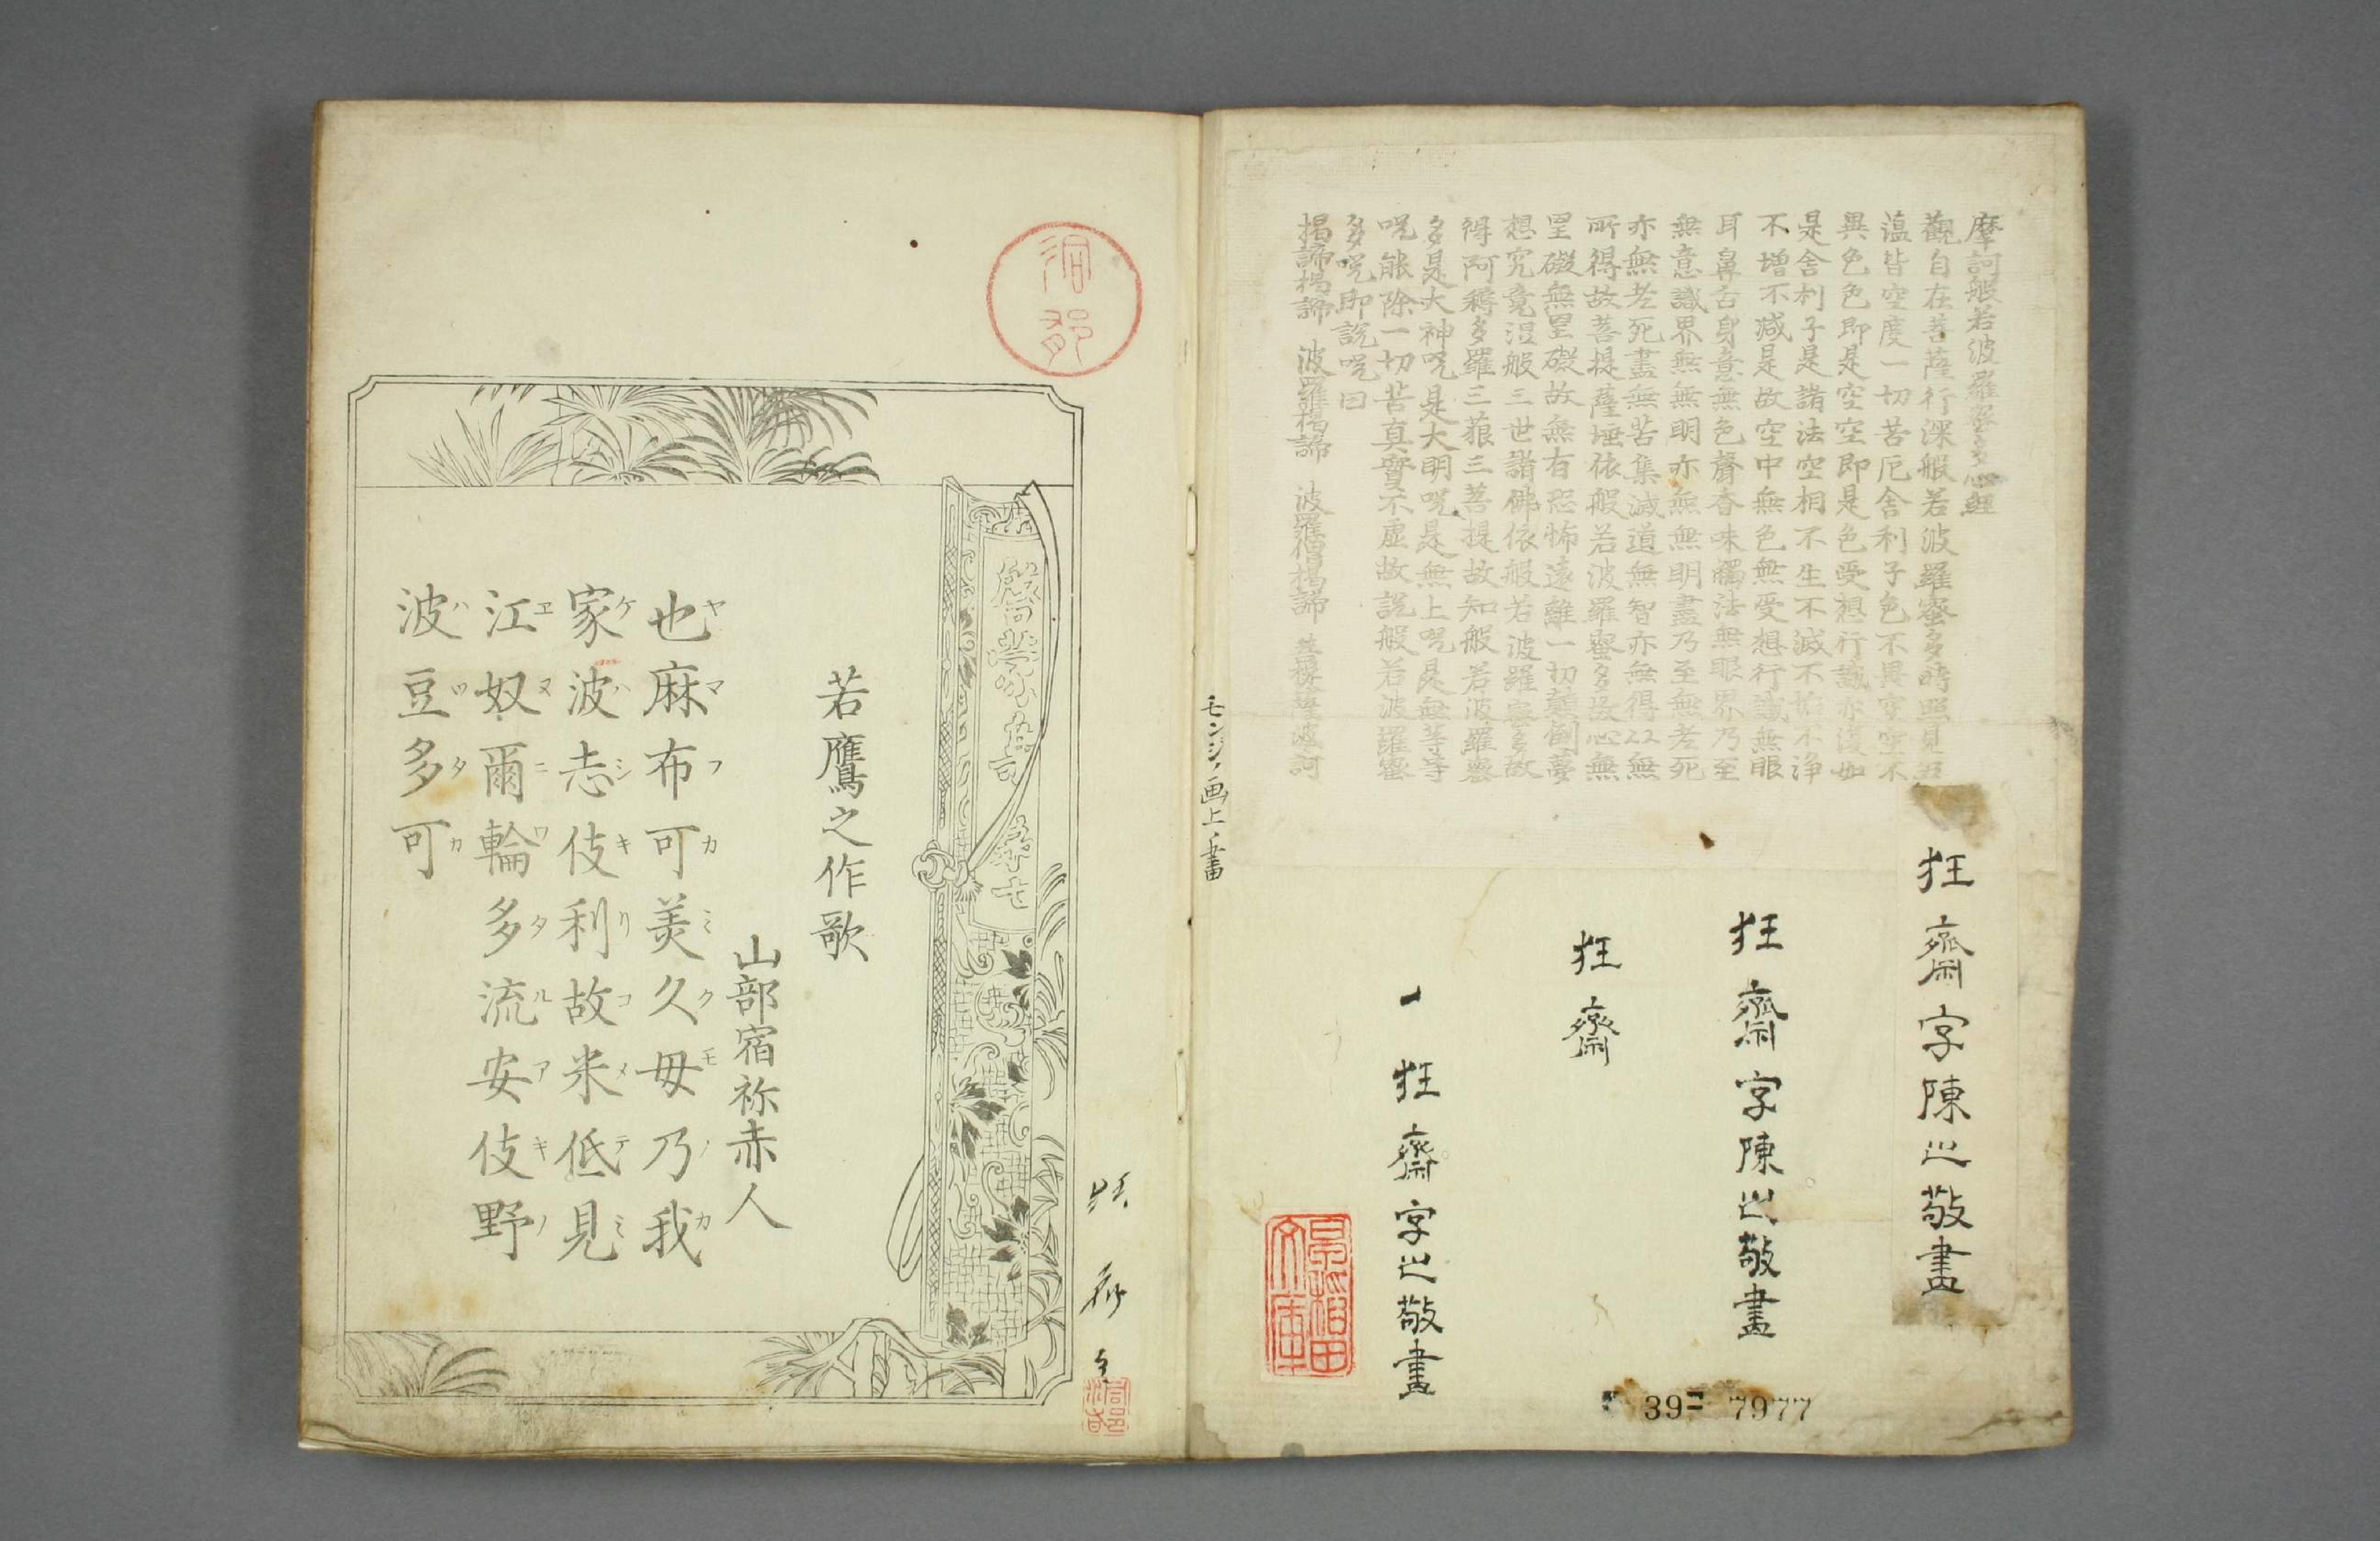 摩訶般若波羅蜜多心經
觀自在菩薩行深般若波羅蜜多時照見五
蘊皆空度一切苦厄舍利子色不異空空不
異色色即是空空即是色受想行識亦復如
是舍利子是諸法空相不生不滅不垢不浄
不增不減是故空中無色無受想行識無眼
耳鼻舌身意無色聲香味觸法無眼界乃至
無意識界無無明亦無無明盡乃至無老死
亦無老死盡無苦集滅道無智亦無得以無
所得故菩提薩埵依般若波羅蜜多故心無
罣礙無罣礙故無有恐怖遠離一切顛倒夢
想究竟涅般三世諸佛依般若波羅蜜多故
得阿耨多羅三藐三菩提故知般若波羅蜜
多是大神呪是大明呪是無上呪是無等等
呪能除一切苦真實不虛故說般若波羅蜜
多呪即說呪曰
揭諦揭諦 波羅揭諦 波羅僧揭諦 菩提薩波訶
狂齋字陳之敬畫
狂齋字陳之敬畫
狂齋
一狂齋字之敬畫
39- 7977
モンジノ画上ノ畫
若鷹之作歌
山部宿祢赤人
也麻布可美久毋乃我
ヤマフカミクモノカ
家波志伎利故米低見
ケハシキリコメテミ
江奴爾輪多流安伎野
エヌニワタルアキノ
波豆多可
ハツタカ